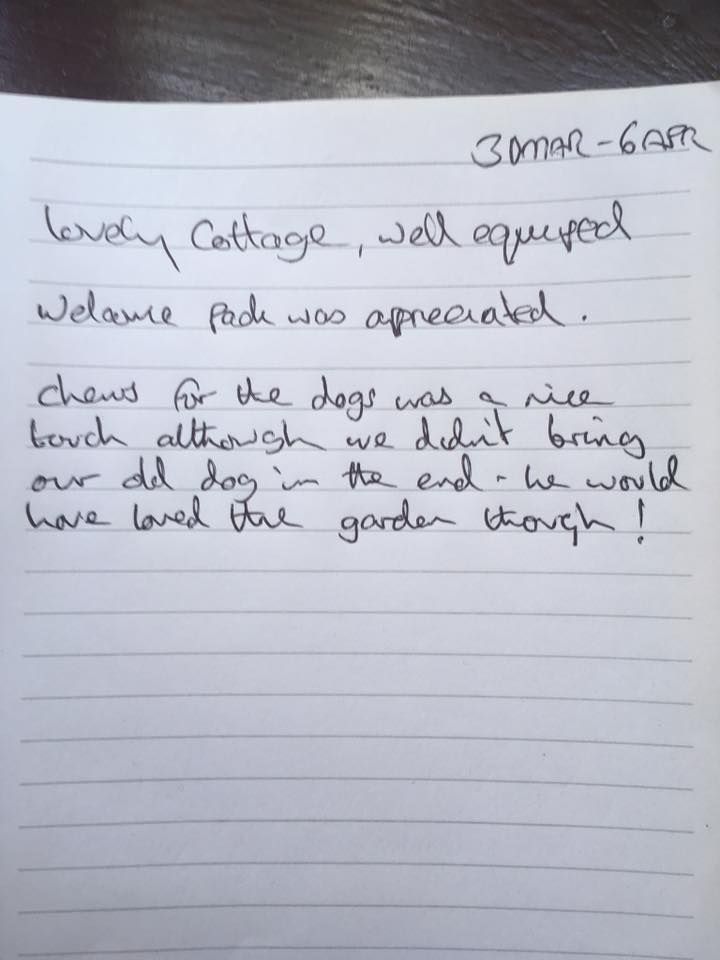 30MAR - 6APR
Lovely Cottage, well equipped
Welcome pack was appreciated.
Chews for the dogs was a nice
touch although we didn't bring
our old dog in the end - he would
have loved the garden though!